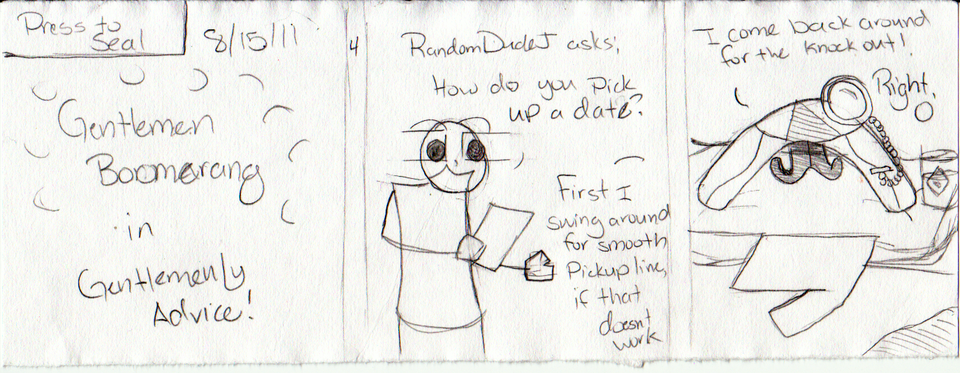 Press to
Seal
8/15/11
Gentlemen
Boomarang
in
Gentlemenly
Advice!
4
RandomDudeJ asks,
How do you pick
up a date?
First I
swing around
for smooth
Pickup line,
if that
doesnt
work
I come back around
for the knock out!
Right.